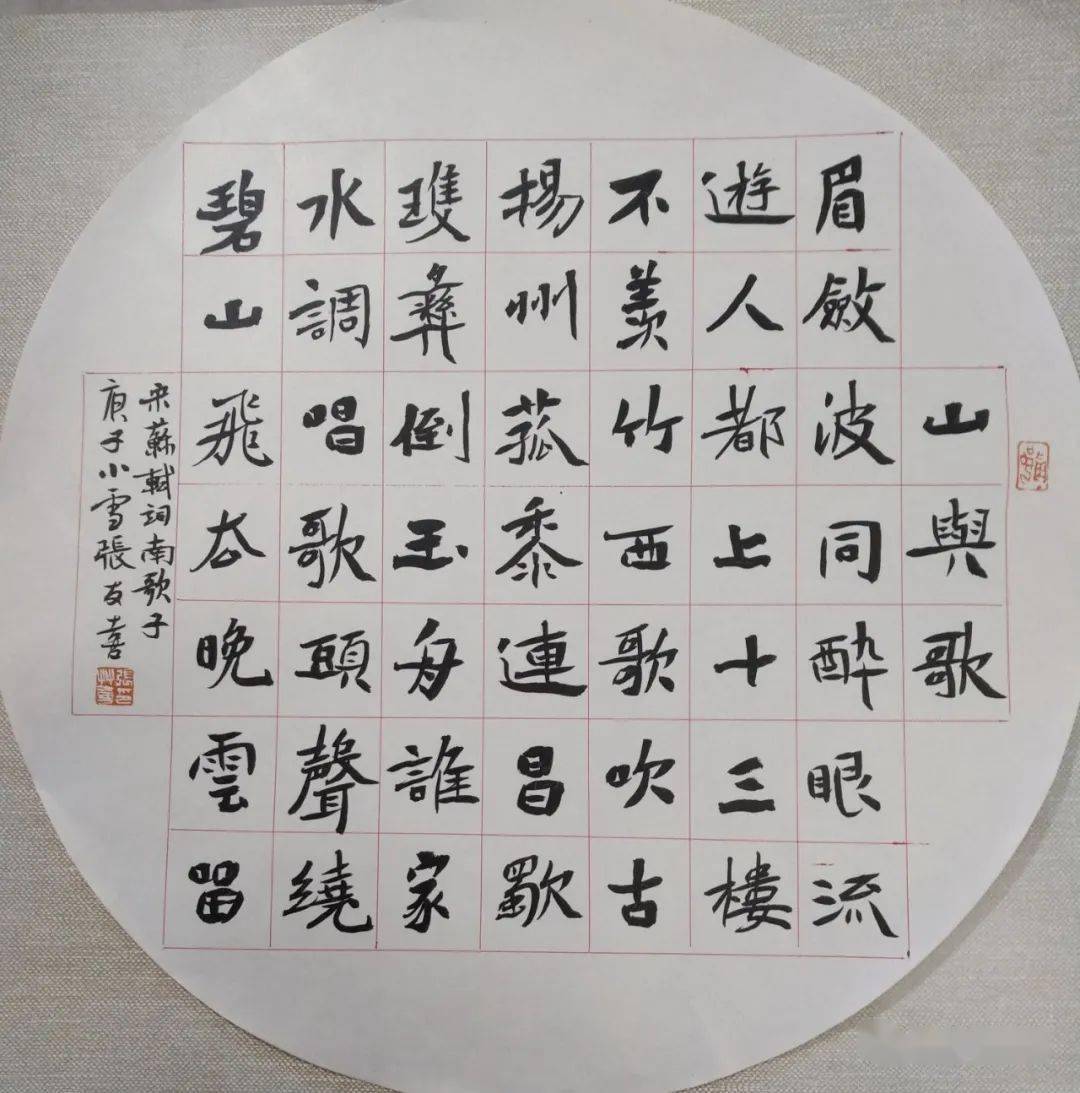 山與歌
眉斂波同醉眼流
遊人都上十三樓
不羨竹西歌吹古
揚州菰黍連昌歜
瓊彝倒玉舟誰家
水調唱歌頭聲繞
碧山飛去晚雲留
宋蘇軾詞南歌子
庚子小雪張友喜